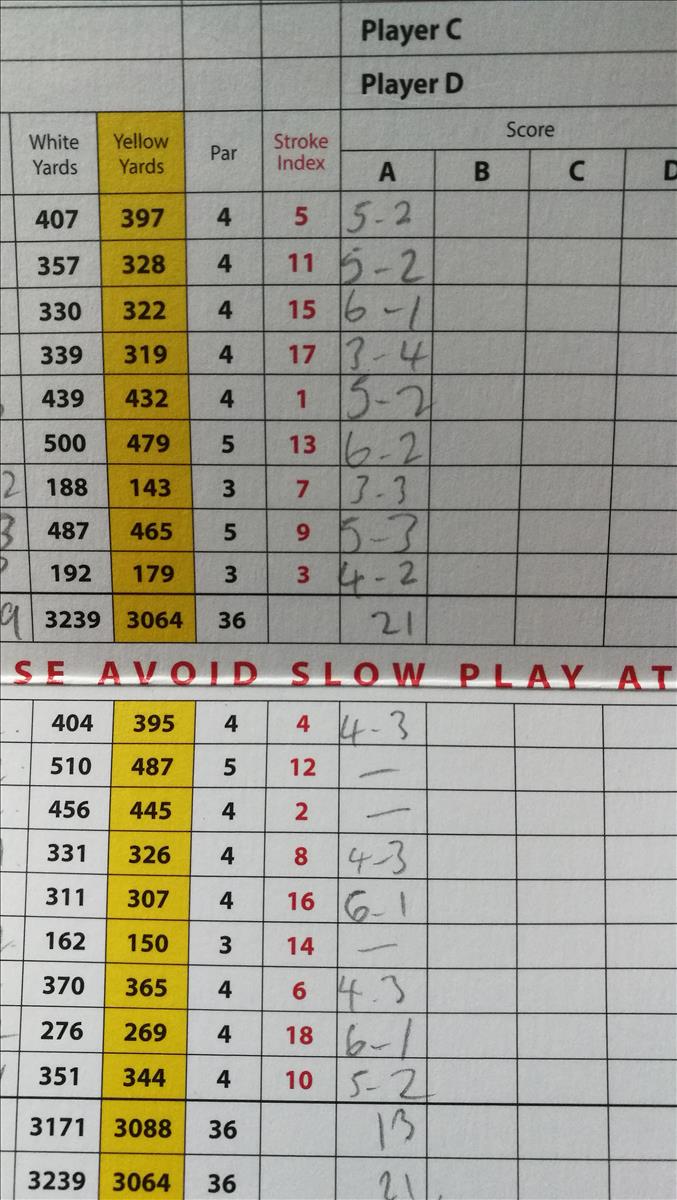 Player C
Player D
White Yards Yellow Yards Par Stroke Index Score
A B C D
407 397 4 5 5-2
357 328 4 11 5-2
330 322 4 15 6-1
339 319 4 17 3-4
439 432 4 1 5-2
500 479 5 13 6-2
2 188 143 3 7 3-3
3 487 465 5 9 5-3
192 179 3 3 4-2
9 3239 3064 36 21
SE AVOID SLOW PLAY AT
404 395 4 4 4-3
510 487 5 12 —
456 445 4 2 —
331 326 4 8 4-3
311 307 4 16 6-1
162 150 3 14 —
370 365 4 6 4-3
276 269 4 18 6-1
351 344 4 10 5-2
3171 3088 36 13
3239 3064 36 21